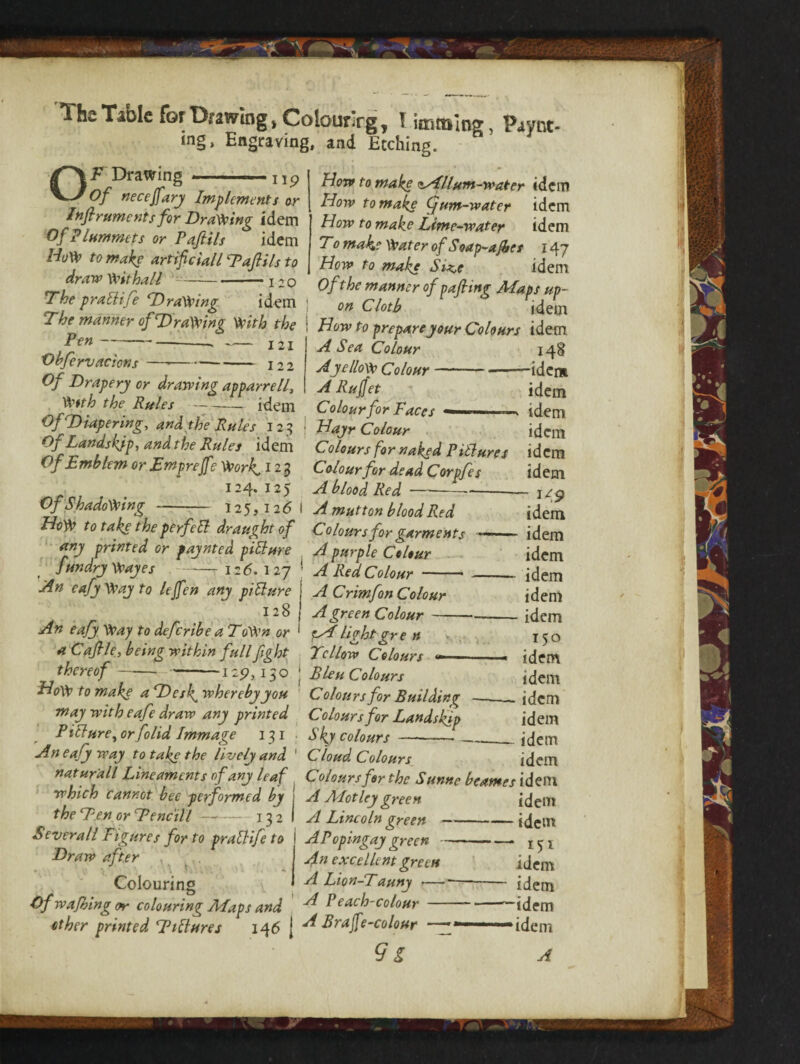 The Table for Drawing, Colouring, Limming, Paynt-
ing, Engraving, and Etching.
OF Drawing 119
Of necessary Implements or
Instruments for Drawing idem
Of Plummets or Pastils idem
How to make artificiall Pastils to
draw withall 120
The practise Drawing idem
The manner of Drawing with the
Pen 121
Observacions 122
Of Drapery or drawing apparrell,
with the Rules idem
Of Diapering, and the Rules 123
Of Landskip, and the Rules idem
Of Emblem or Empresse work, 123
124. 125
Of Shadowing 125, 126
How to take the perfect draught of
any printed or paynted picture
sundry wayes 126. 127
An easy way to lessen any picture
128
An easy way to describe a Town or
a Castle, being within full sight
thereof 129, 130
How to make a Desk whereby you
may with ease draw any printed
Picture, or solid Immage 131
An easy way to take the lively and
naturall Lineaments of any leaf
which cannot bee performed by
the Pen or Pencill 132
Severall Figures for to practise to
Draw after
Colouring
Of washing or colouring Maps and
other printed Pictures 146
How to make Allum-water idem
How to make Gum-water idem
How to make Lime-water idem
To make water of Soap-ashes 147
How to make Size idem
Of the manner of pasting Maps up-
on Cloth idem
How to prepare your Colours idem
A Sea Colour 148
A yellow Colour idem
A Russet idem
Colour for Faces idem
Hayr Colour idem
Colours for naked Pictures idem
Colour for dead Corpses idem
A blood Red 149
A mutton blood Red idem
Colours for garments idem
A purple Colour idem
A Red Colour idem
A Crimson Colour idem
A green Colour idem
A light gre n 150
Yellow Colours idem
Bleu Colours idem
Colours for Building idem
Colours for Landskip idem
Sky colours idem
Cloud Colours idem
Colours for the Sunne beames idem
A Motley green idem
A Lincoln green idem
A Popingay green 151
An excellent green idem
A Lion-Tauny idem
A Peach-colour idem
A Brasse-colour idem
Gg A